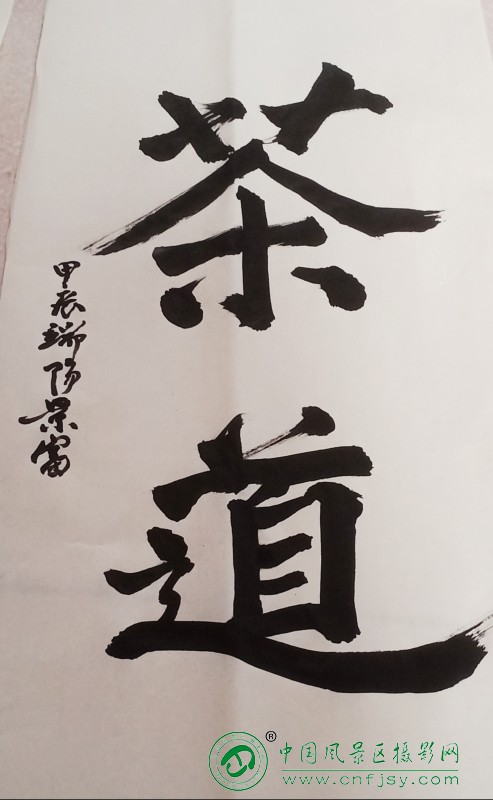 茶道
甲辰端阳景富
®
中国风景区摄影网
www.cnfjsy.com